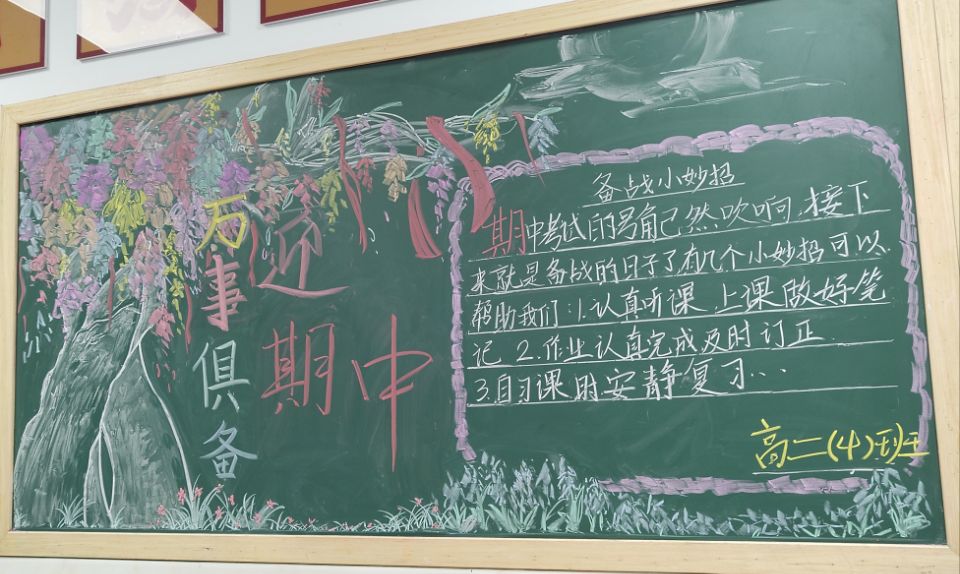 万事俱备
迎期中
备战小妙招
期中考试的号角已然吹响,接下
来就是备战的日子了有几个小妙招可以
帮助我们:1.认真听课,上课做好笔
记 2.作业认真完成及时订正.
3.自习课时安静复习...
高二(4)班